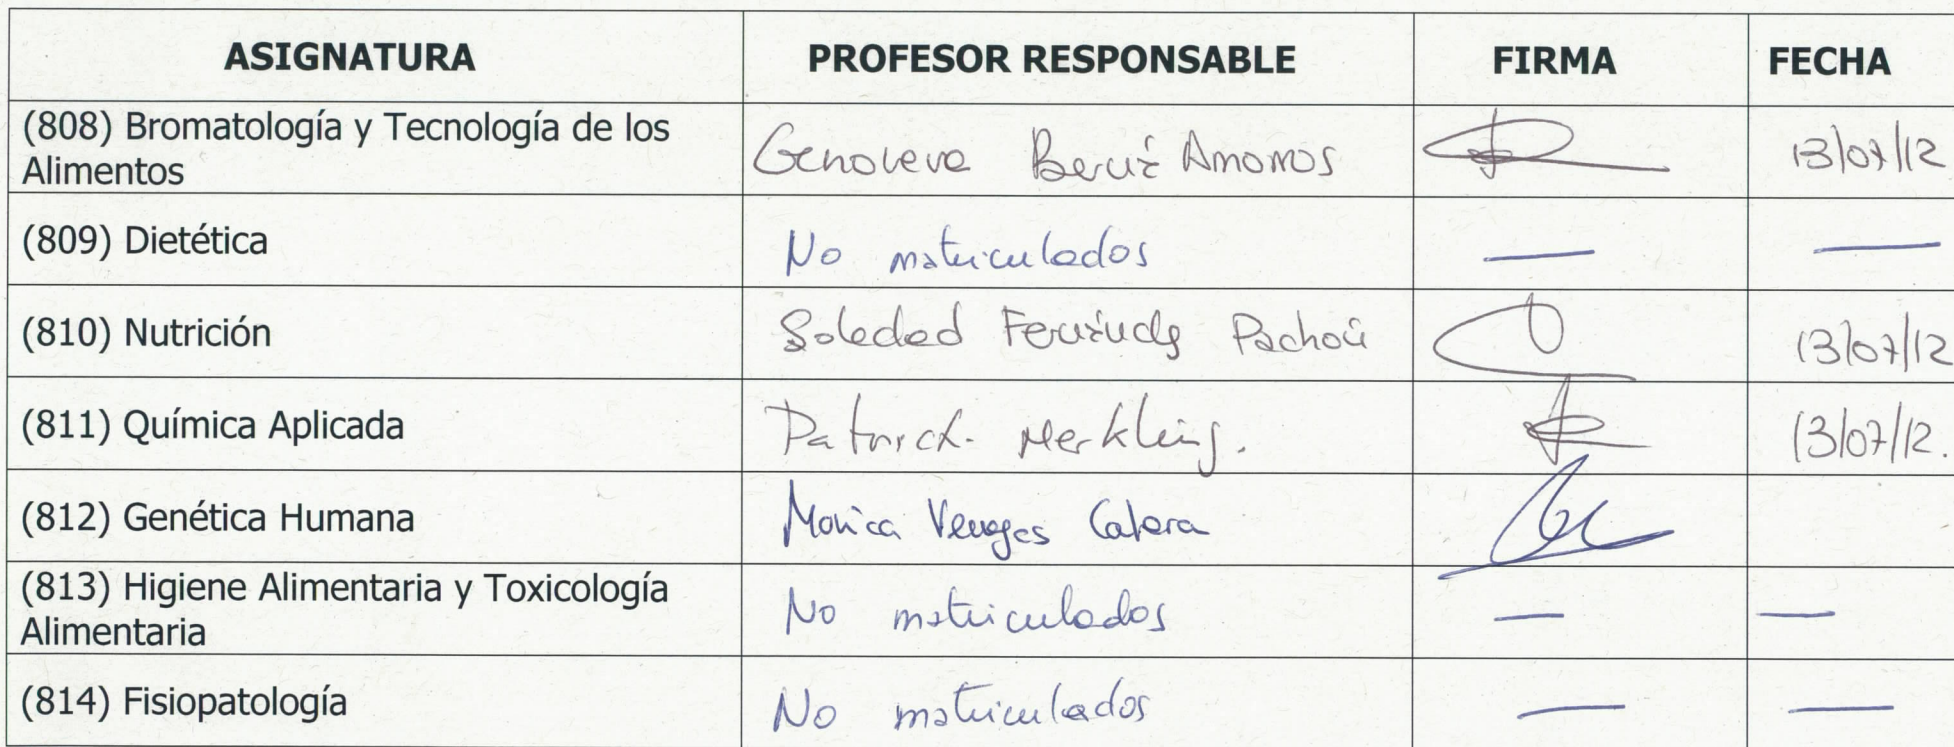 ASIGNATURA PROFESOR RESPONSABLE FIRMA FECHA
(808) Bromatología y Tecnología de los
Alimentos
Genoveva Amoros 13/07/12
(809) Dietética No matriculados — —
(810) Nutrición Soledad Pachón 13/07/12
(811) Química Aplicada Patrick Merkling. 13/07/12.
(812) Genética Humana Monica Venegas Calera
(813) Higiene Alimentaria y Toxicología
Alimentaria
No matriculados — —
(814) Fisiopatología No matriculados — —